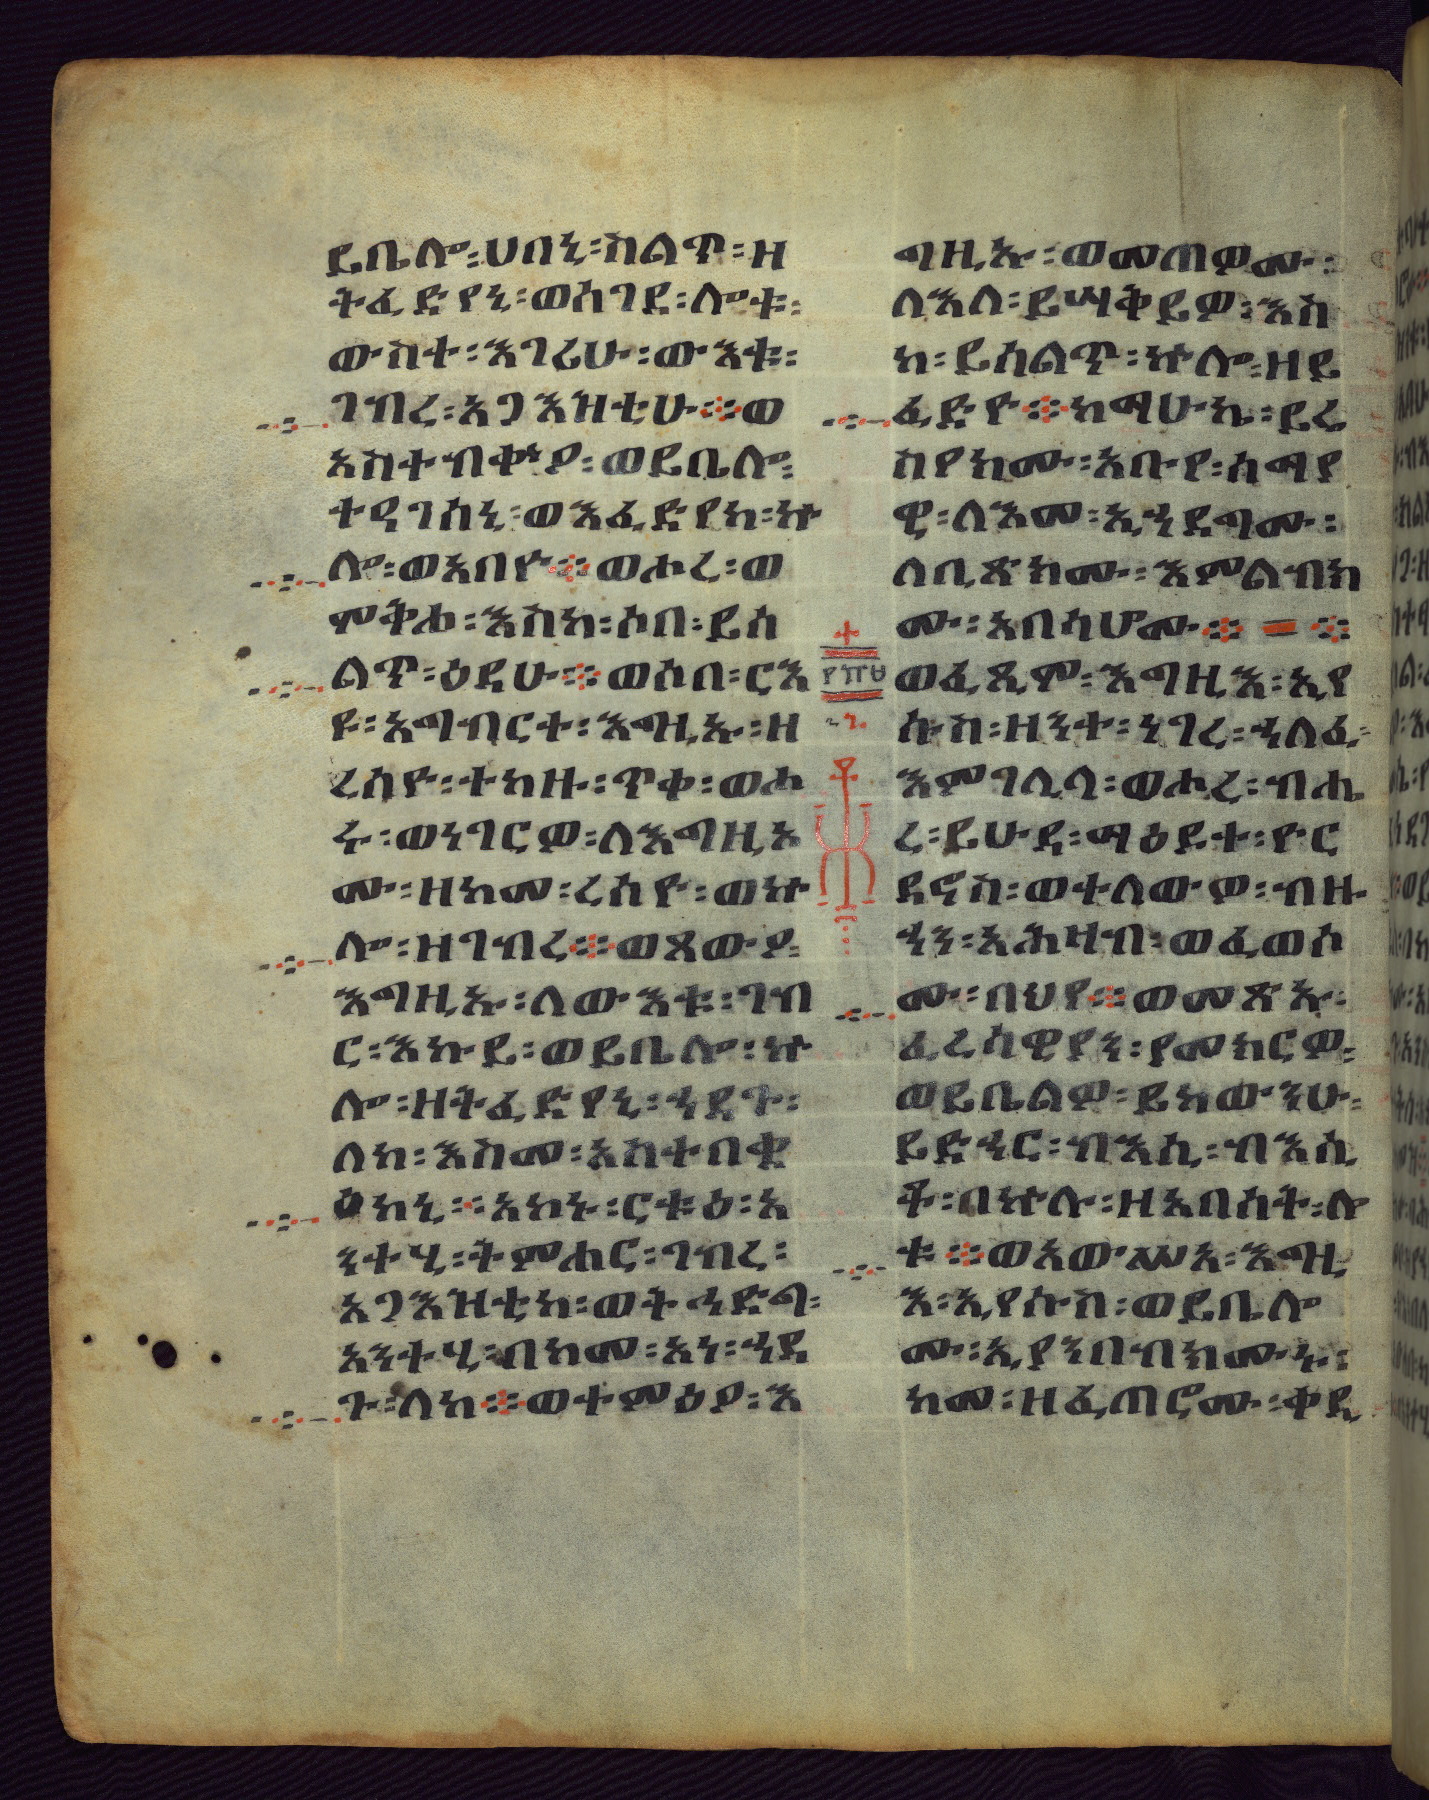 ይቤሎ፡ሀበኒ፡ስልጥ፡ዘ
ትፈድየኒ፡ወሰገደ፡ሎቱ፡
ውስተ፡እገሪሁ፡ውእቱ፡
ገብረ፡አጋእዝቲሁ፨ወ
አስተብቍዖ፡ወይቤሎ፡
ተዓገሰኒ፡ወእፈድየከ፡ኵ
ሎ፡ወአበየ፨ወሖረ፡ወ
ሞቅሖ፡እስከ፡ሶበ፡ይሰ
ልጥ፡ዕዳሁ፨ወሶበ፡ርእ
ዩ፡አግብርተ፡እግዚኡ፡ዘ
ረሰዮ፡ተከዙ፡ጥቀ፡ወሖ
ሩ፡ወነገርዎ፡ለእግዚኦ
ሙ፡ዘከመ፡ረሰዮ፡ወኵ
ሎ፡ዘገብረ፨ወጸውዖ፡
እግዚኡ፡ለውእቱ፡ገብ
ር፡እኩይ፡ወይቤሎ፡ኵ
ሎ፡ዘትፈድየኒ፡ኀደጉ፡
ለከ፡እስመ፡አስተብቋ
ዕከኒ፡፡አከኑ፡ርቱዕ፡አ
ንተሂ፡ትምሐር፡ገብረ፡
አጋእዝቲከ፡ወትኀድግ፡
አንተሂ፡በከመ፡አነ፡ኀደ
ጉ፡ለከ፨ወተምዕዖ፡እ
ግዚኡ፡ወመጠዎሙ፡
ለእለ፡ይሣቅይዎ፡እስ
ከ፡ይሰልጥ፡ኵሎ፡ዘይ
ፈድዮ፨ከማሁኬ፡ይረ
ስየክሙ፡አቡየ፡ሰማያ
ዊ፡ለእመ፡ኢኀደግሙ፡
ለቢጽክሙ፡እምልብክ
ሙ፡አበሳሆሙ፨ = ፨
ወፈጺሞ፡እግዚእ፡ኢየ
ሱስ፡ዘንተ፡ነገረ፡ኀለፈ፡
እምገሊላ፡ወሖረ፡ብሔ
ረ፡ይሁዳ፡ማዕዶተ፡ዮር
ዳኖስ፡ወተለውዎ፡ብዙ
ኀን፡አሕዛብ፡ወፈወሶ
ሙ፡በህየ፨ወመጽኡ፡
ፈሪሳዊያን፡ያመከርዎ፡
ወይቤልዎ፡ይከውንሁ፡
ይድኀር፡ብእሲ፡ብእሲ
ቶ፡በኵሉ፡ዘአበሰት፡ሎ
ቱ፨ወአውሥአ፡እግዚ
እ፡ኢየሱስ፡ወይቤሎ
ሙ፡ኢያንበብክሙኑ፡
ከመ፡ዘፈጠሮሙ፡ቀዲ